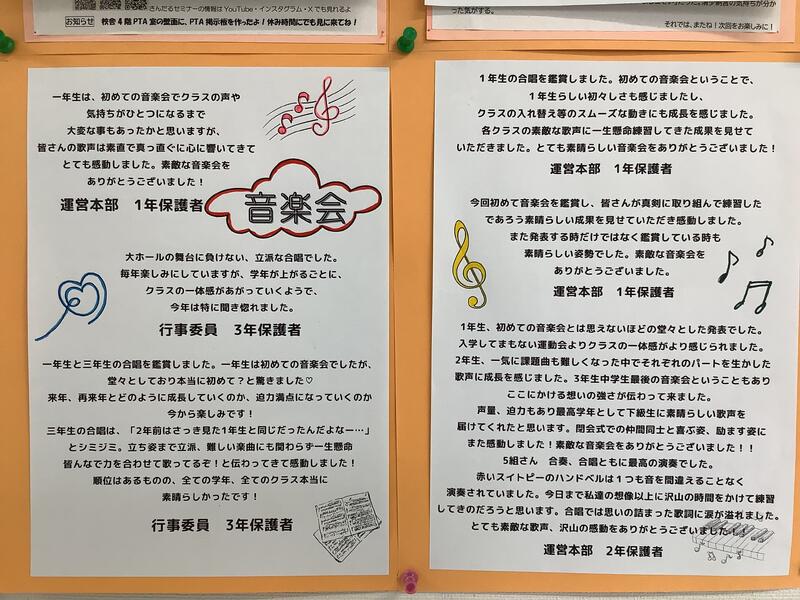 さんだるセミナーの情報は YouTube・インスタグラム・X でも見れるよ
お知らせ 校舎 4 階 PTA 室の壁面に、PTA 掲示板を作ったよ！休み時間にでも見に来てね！
った気がする。
それでは、またね！次回をお楽しみに！
一年生は、初めての音楽会でクラスの声や
気持ちがひとつになるまで
大変な事もあったかと思いますが、
皆さんの歌声は素直で真っ直ぐに心に響いてきて
とても感動しました。素敵な音楽会を
ありがとうございました！
運営本部 1年保護者
音楽会
大ホールの舞台に負けない、立派な合唱でした。
毎年楽しみにしていますが、学年が上がるごとに、
クラスの一体感があがっていくようで、
今年は特に聞き惚れました。
行事委員 3年保護者
一年生と三年生の合唱を鑑賞しました。一年生は初めての音楽会でしたが、
堂々としており本当に初めて？と驚きました♡
来年、再来年とどのように成長していくのか、迫力満点になっていくのか
今から楽しみです！
三年生の合唱は、「2年前はさっき見た1年生と同じだったんだよなー…」
とシミジミ。立ち姿まで立派、難しい楽曲にも関わらず一生懸命
皆んなで力を合わせて歌ってるぞ！と伝わってきて感動しました！
順位はあるものの、全ての学年、全てのクラス本当に
素晴らしかったです！
行事委員 3年保護者
1年生の合唱を鑑賞しました。初めての音楽会ということで、
1年生らしい初々しさも感じましたし、
クラスの入れ替え等のスムーズな動きにも成長を感じました。
各クラスの素敵な歌声に一生懸命練習してきた成果を見せて
いただきました。とても素晴らしい音楽会をありがとうございました！
運営本部 1年保護者
今回初めて音楽会を鑑賞し、皆さんが真剣に取り組んで練習した
であろう素晴らしい成果を見せていただき感動しました。
また発表する時だけではなく鑑賞している時も
素晴らしい姿勢でした。素敵な音楽会を
ありがとうございました。
運営本部 1年保護者
1年生、初めての音楽会とは思えないほどの堂々とした発表でした。
入学してまもない運動会よりクラスの一体感がより感じられました。
2年生、一気に課題曲も難しくなった中でそれぞれのパートを生かした
歌声に成長を感じました。3年生中学生最後の音楽会ということもあり
ここにかける想いの強さが伝わって来ました。
声量、迫力もあり最高学年として下級生に素晴らしい歌声を
届けてくれたと思います。閉会式での仲間同士と喜ぶ姿、励ます姿に
また感動しました！素敵な音楽会をありがとうございました！！
5組さん 合奏、合唱ともに最高の演奏でした。
赤いスイトピーのハンドベルは1つも音を間違えることなく
演奏されていました。今日まで私達の想像以上に沢山の時間をかけて練習
してきのだろうと思います。合唱では思いの詰まった歌詞に涙が溢れました。
とても素敵な歌声、沢山の感動をありがとうございました！！
運営本部 2年保護者